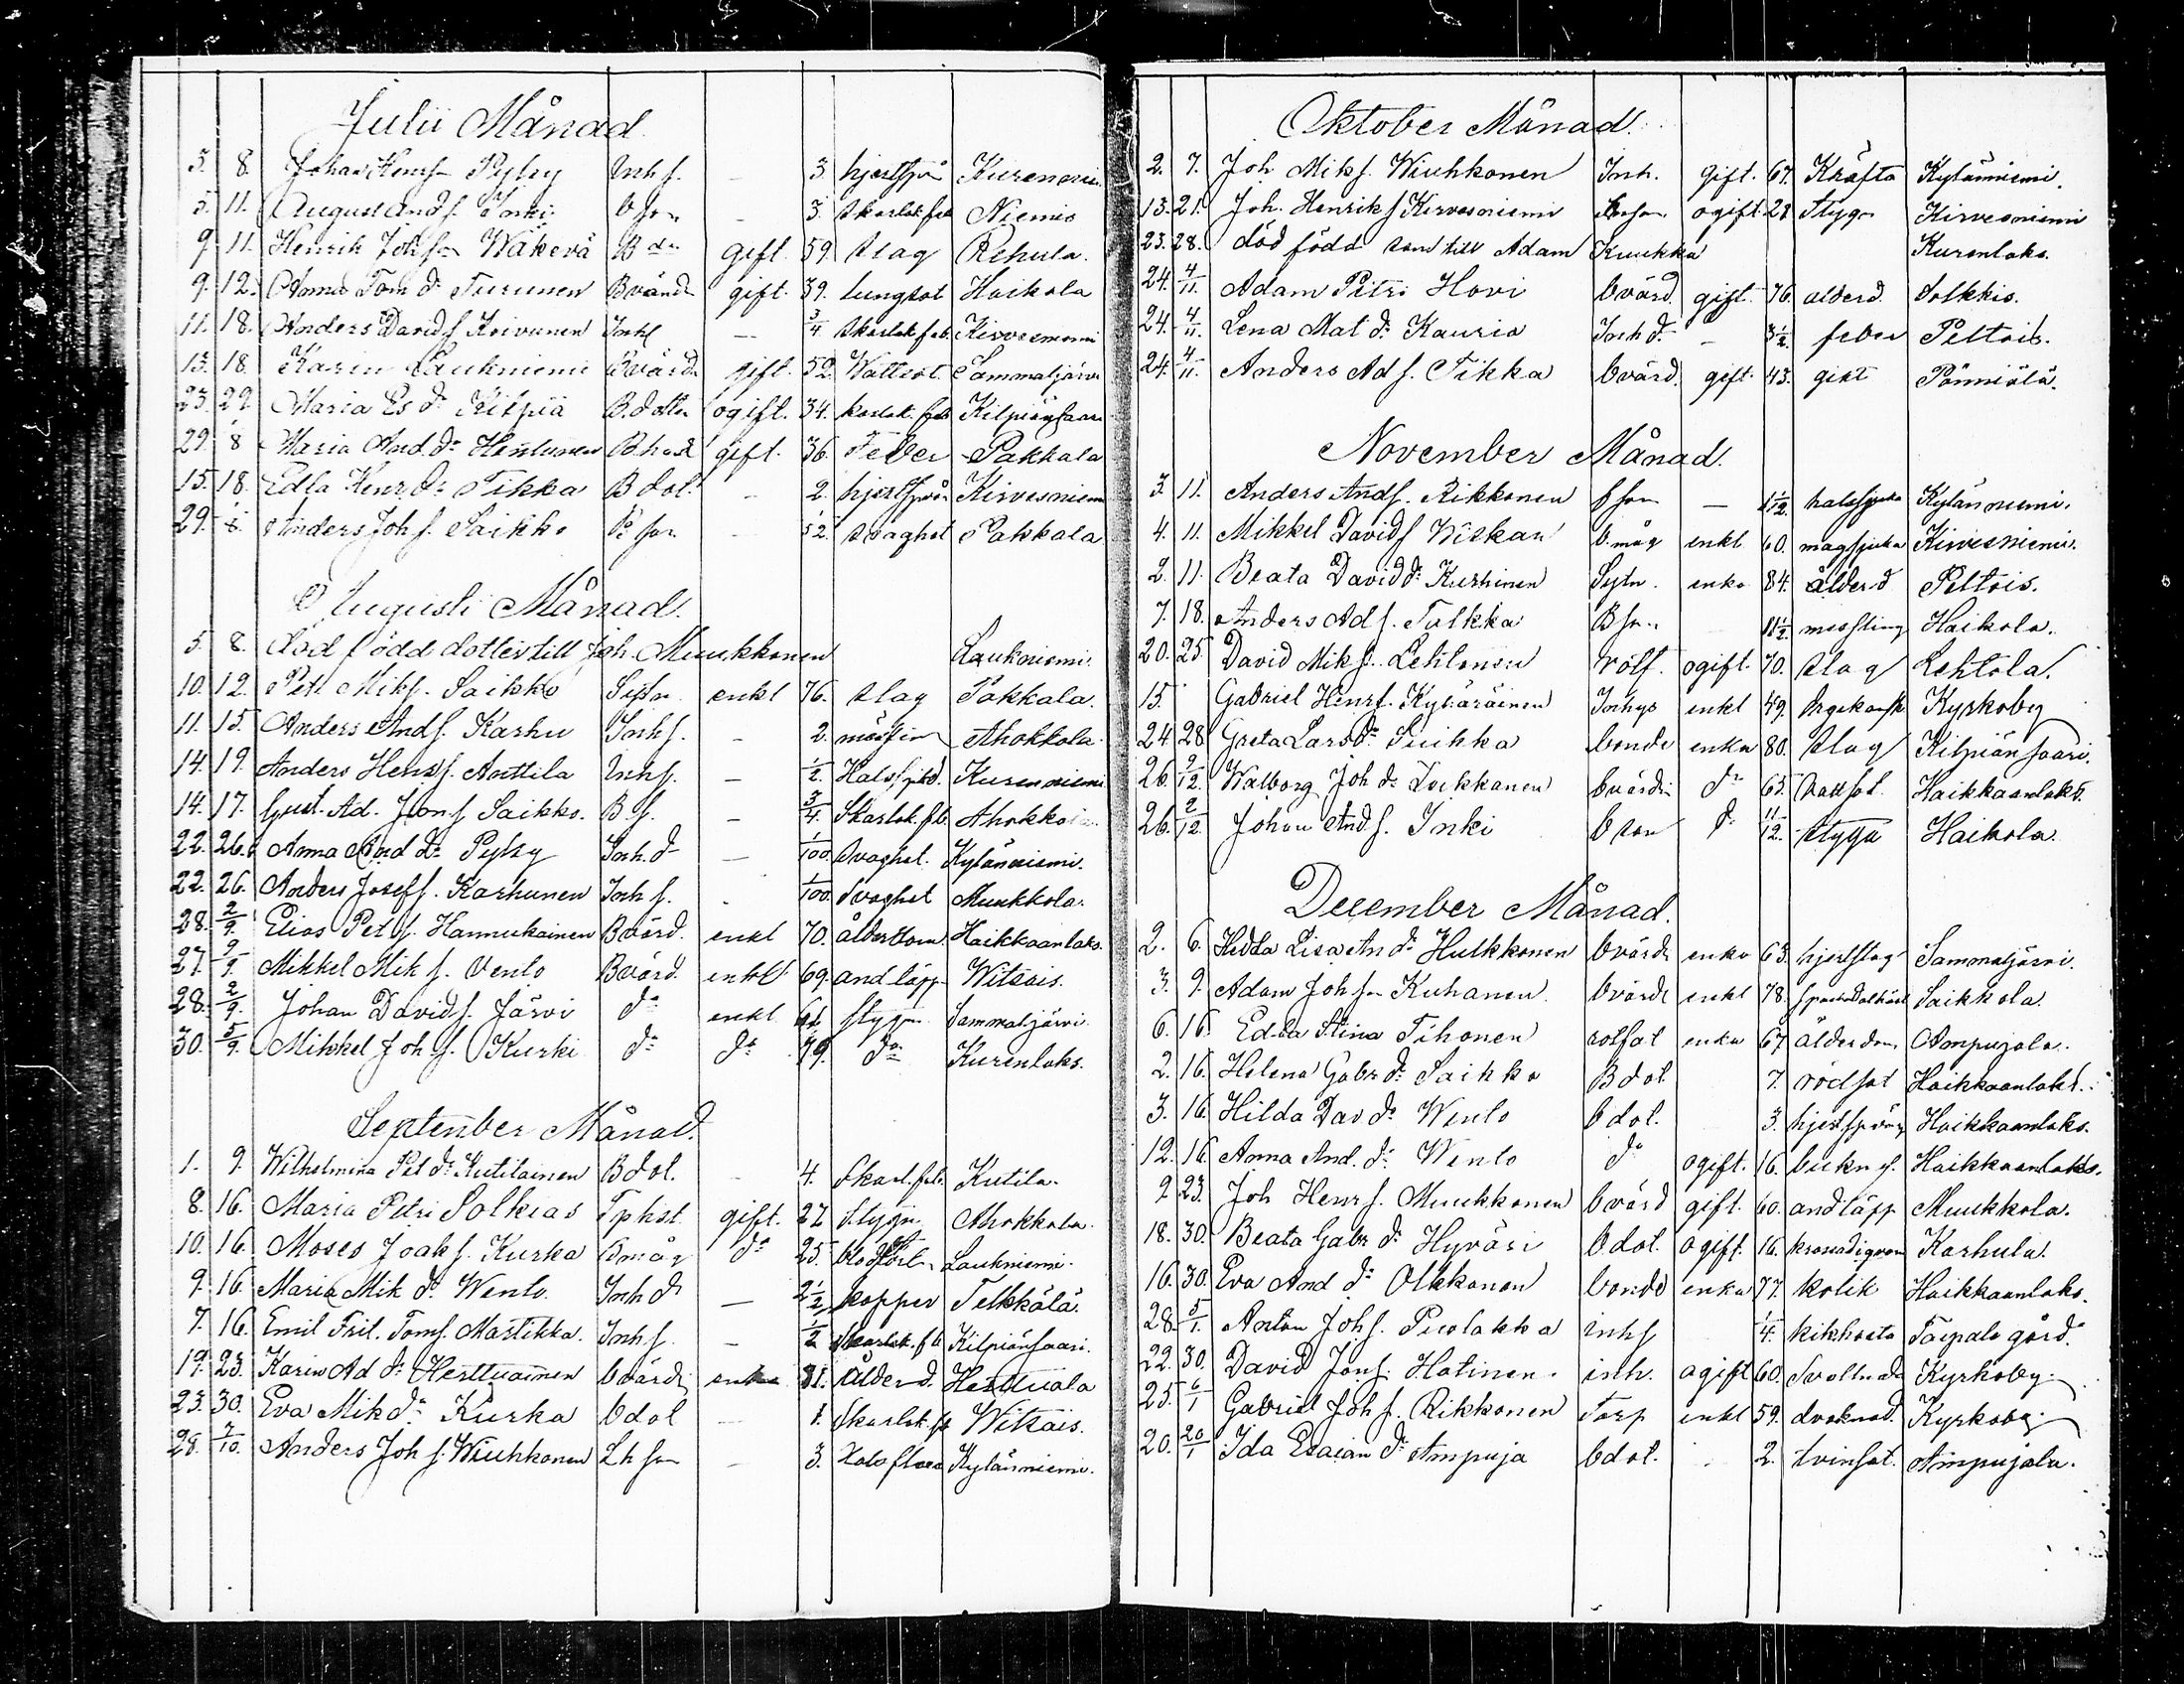 Julii Månad
5. 8. Johan Henrs. Pylzy Inh s. — 3. hjertspr. Kurenniemi
5. 11. August Ands. Inki b son — 3. skarlak.feb Niemis
9. 11. Henrik Johson Wäkevä B dn gift. 59. slag Rehula.
9. 12. Anna Tom dr Turunen Bvärd gift. 39. lungsot Haikola
11. 18. Anders Davids Koivunen Inhs — 3/4 skarlak feb. Kirvesniemi
13. 18. Karin Laukniemi Bvärd. gift. 52. Wattsot. Sammaljärvi
23. 29. Maria Es dr Kilpiä B.dotter ogift. 34. skarlak. feb Kilpiänsaari
29. 8 Maria And. dr Henttunen B.hust gift. 36. Feber Pakkala
15. 18. Edla Henr dr Tikka B dot. — 2. hjertspr. Kirvesniemi
29. Anders Joh s. Saikko B son svaghet Pakkala
Augusti Månad.
5. 8. Död född dotter till Joh. Muukkonen Laukniemi.
10. 12. Petr Miks. Saikko Sytn enkl 76. slag Pakkala.
11. 15. Anders Ands. Karhu Inhs. - 2. Ahokkala.
14. 19. Anders Henrs. Anttila Inhs. — 1/2. Halssjukd. Kurenniemi
14. 17. Gust. Ad. Jons Saikko. B s. — 3/4. Skarlak. feb. Ahokkala
22. 26. Anna And dr Pylzy Inh. d — 1/100. svaghet. Kylänniemi.
22. 26. Anders Josefs. Karhunen Inh s. 1/100. svaghet Muukkola.
28. 2/9. Elias Pet s. Hannukainen Bvärd. enkl 70. ålderdom. Haikkaanlaks.
27. 2/9. Mikkel Mik s. Vento Bvärd. enkl 69. andtäpp Witsais.
28. 2/9. Johan Davids. Järvi do enkl 61. stygn Sammaljärvi
30. 5/9. Mikkel Joh s. Kurki do do 79. do Kurenlaks.
September Månad.
1. 9. Wilhelmina Pet dr Kutilainen B dot. 4. skarl.feb. Kutila.
8. 16. Maria Petri Solkias Tphst gift. 27 stygn Ahokkala.
10. 16. Moses Joaks. Kurka Bmåg do 25. Laukniemi.
9. 16. Maria Mik dr Wento. Inh dr — 2 1/2 koppor Telkkälä.
7. 16. Emil Fril. Toms. Martikka. Inhs. — 1/2 skarlak. feb Kilpiänsaari.
19. 23. Karin Ad dr Herttuainen bvärd enka 81. ålderd. Herttuala
23. 30. Eva Mik dr Kurka bdot — 1. skarlak. feb Witsais.
28. 7/10. Anders Joh s. Wiuhkonen Lh son — 3. Halsfluss Kylänniemi.
Oktober Månad.
2. 7. Joh Miks. Wiuhkonen Inh. gift. 67. Kräfta Kylänniemi.
13. 21. Joh. Henriks Kirvesniemi bonson ogift. 28 Stygn Kirvesniemi
23. 28. död född son till Adam Kuukka Kurenlaks.
24. 4/11. Adam Petri Hovi bvärd. gift. 76. ålderd. Solkkis.
24. 4/11. Lena Mat dr Kauria Inh dr — 3 1/2. feber Peltois.
24. 4/11. Anders Ad s. Tikka bvärd. gift. 43. gikt Pänniälä.
November Månad.
3. 11. Anders Ands. Rikkonen b son — 1 1/2. halssjuka Kylänniemi.
4. 11. Mikkel Davids Wiskari b.måg enkl 60. magsjuka Kirvesniemi.
2. 11. Beata David dr Kurhinen Sytn. enka 84. ålderd Peltois.
7. 18. Anders Ad s. Tulkka B son 11 1/2. messling Haikola.
20. 25. David Miks. Lehtonen rotf. ogift. 70. slag Lehtola.
15. Gabriel Henrs. Kyläräinen Inhys enkl 49. Kyrkoby
24 28 Greta Lars dr Suikka bonde enka 80. slag Kilpiänsaari.
26. 2/12. Walborg Joh dr Loikkanen bvärdn do 65. vattsot. Haikkaanlaks.
26. 2/12. Johan Ands. Inki b son do 11/12. stygn Haikola.
December Månad.
2. 6. Hedda Lisa An dr Hulkkonen bvärd enka 63. hjertslag Sammaljärvi.
3. 9. Adam Joh son Kuhanen bvärd enkl 78. Saikkola.
6. 16. Edla Stina Tihonen rotfat enka 67. ålderdom Ampujala.
2. 16. Helena Gabr dr Saikko B dot 7. rödsot Haikkaanlaks.
3. 16. Hilda Dav dr Wento b dot. 3. hjertspräng Haikkaanlaks.
12. 16. Anna And. dr Wento do ogift. 16. Haikkaanlaks.
9. 23. Joh Henrs. Muukkonen bvärd gift. 60. andtäpp Muukkola.
18. 30. Beata Gabr dr Hyväri b dot. ogift. 16. Karhula.
16. 30. Eva And dr Olkkonen bonde enka 77. kolik Haikkaanlaks.
28. 5/1. Anton Johs. Puolakka inhs 1/4. kikhosta Taipale gård.
22. 30. David Jons. Hotinen. inh. ogift 60. Kyrkoby.
25. 6/1 Gabriel Joh s. Rikkonen Torp enkl 59. drunknad. Kyrkoby.
20. 20/1 Ida Esaian dr Ampuja bdot. 2. tvinsot. Ampujala.